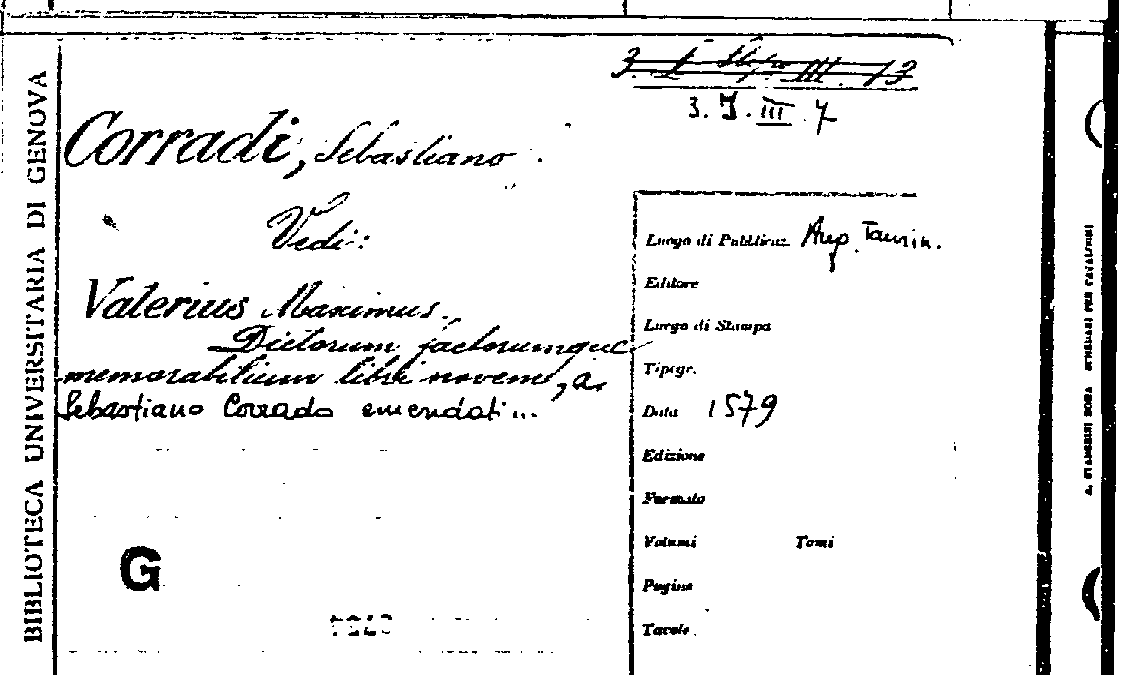 BIBLIOTECA UNIVERSITARIA DI GENOVA
3. J. III. 7
Corradi, Sebastiano
Vedi:
Valerius Maximus.
Dictorum factorumque
memorabilium libri novem, a
Sebastiano Corrado emendati...
G
Luogo di Pubblicaz. Aug. Taurin.
Editore
Luogo di Stampa
Tipogr.
Data 1579
Edizione
Formato
Volumi Tomi
Pagine
Tavole